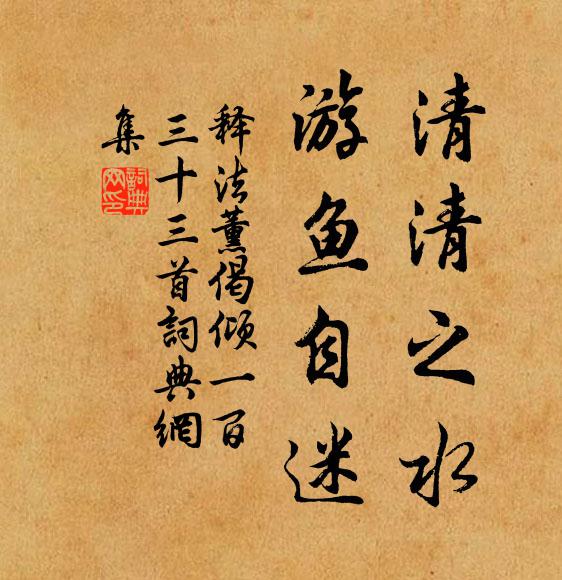 清清之水
游鱼自迷
释法薰偈倾一百
三十三首詞典網
集
詞典網印